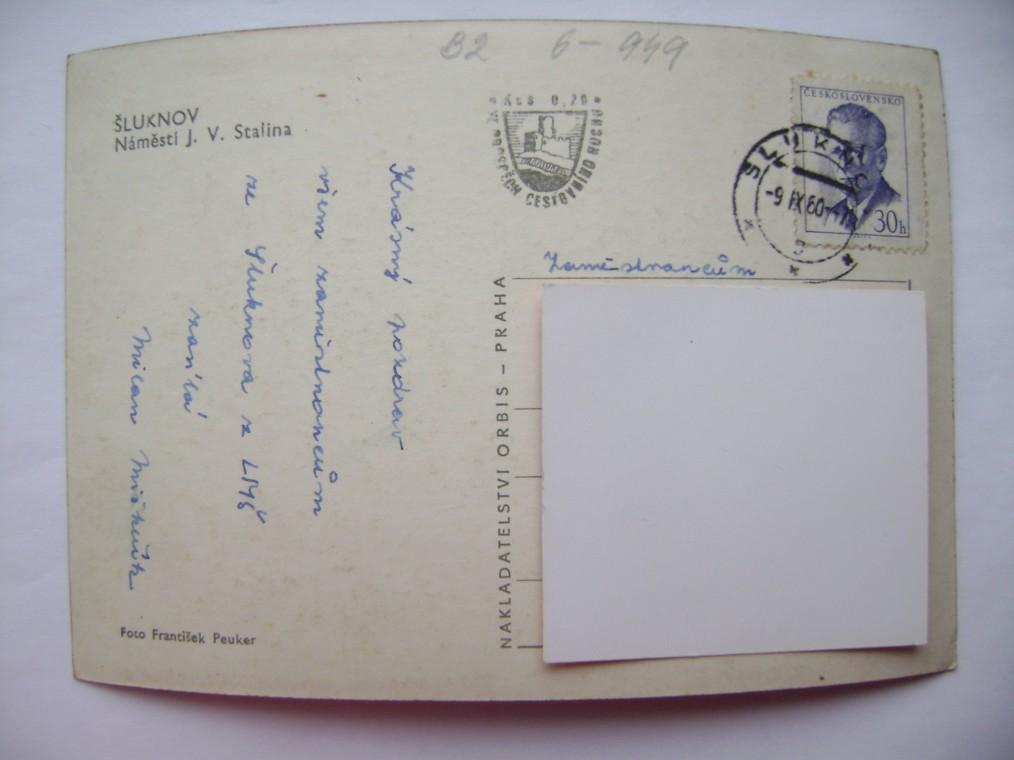 B2 6-949
ŠLUKNOV
Náměstí J. V. Stalina
Krásný pozdrav
všem zaměstnancům
ze Šluknova z LMŠ
zasílá
Milan
Foto František Peuker
NAKLADATELSTVÍ ORBIS – PRAHA
Kčs 0,20
VE PROSPĚCH CESTOVNÍHO RUCHU
ČESKOSLOVENSKO
30h
ŠLUKNOV
-9 IX 60
Zaměstnancům